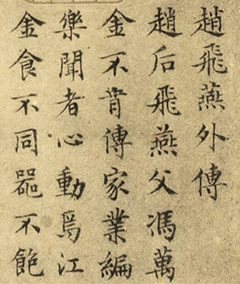 趙飛燕外傳
趙后飛燕父馮萬
金不肯傳家業編
樂聞者心動焉江
金食不同器不飽